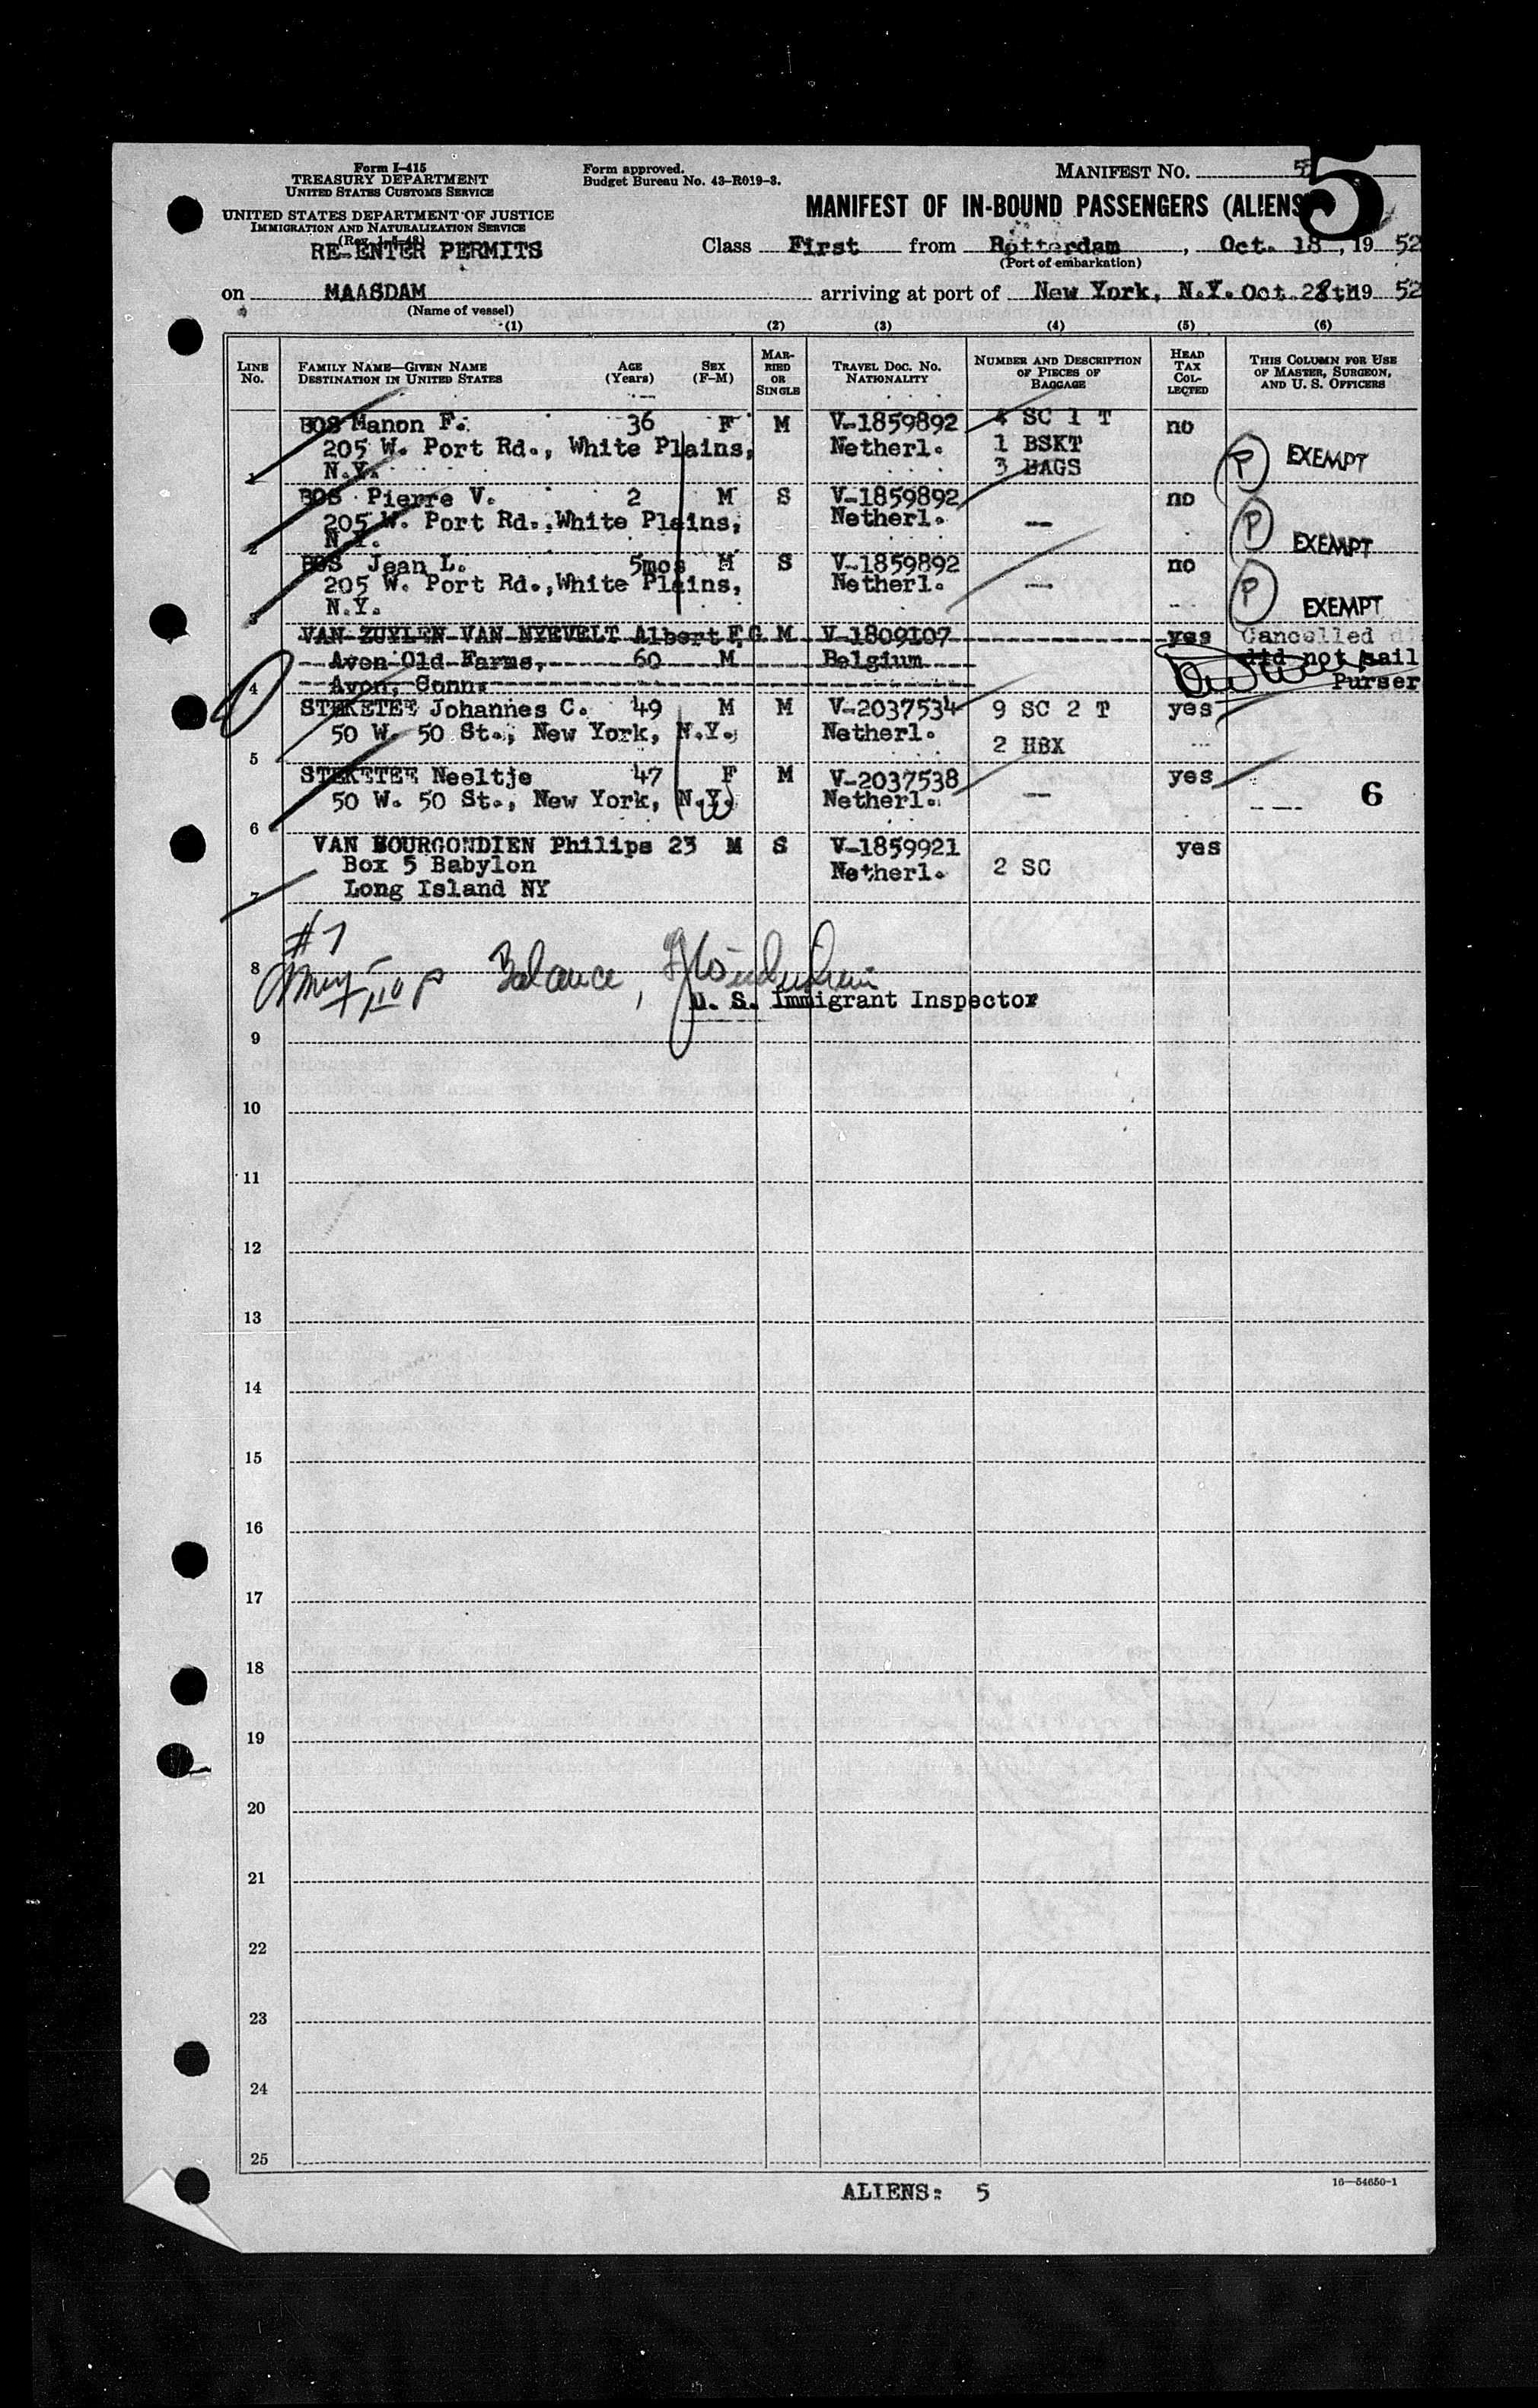 Form I-415
TREASURY DEPARTMENT
UNITED STATES CUSTOMS SERVICE
UNITED STATES DEPARTMENT OF JUSTICE
IMMIGRATION AND NATURALIZATION SERVICE
RE-ENTER PERMITS
Form approved.
Budget Bureau No. 43-R019-3.
MANIFEST No. 5
MANIFEST OF IN-BOUND PASSENGERS (ALIENS)
Class First from Rotterdam, Oct. 18, 19 52
(Port of embarkation)
on MAASDAM arriving at port of New York, N.Y. Oct. 28th 19 52
(Name of vessel)
(1) (2) (3) (4) (5) (6)
LINE No.
FAMILY NAME—GIVEN NAME
DESTINATION IN UNITED STATES
AGE (Years)
SEX (F-M)
MARRIED OR SINGLE
TRAVEL DOC. NO.
NATIONALITY
NUMBER AND DESCRIPTION OF PIECES OF BAGGAGE
HEAD TAX COLLECTED
THIS COLUMN FOR USE OF MASTER, SURGEON, AND U. S. OFFICERS
BOS Manon F. 36 F M V-1859892 4 SC 1 T no
205 W. Port Rd., White Plains, Netherl. 1 BSKT
1 N.Y. 3 BAGS P EXEMPT
BOS Pierre V. 2 M S V-1859892 no
205 W. Port Rd., White Plains, Netherl. — P
2 N.Y. EXEMPT
BOS Jean L. 5mos M S V-1859892 no
205 W. Port Rd., White Plains, Netherl. — P
3 N.Y. EXEMPT
VAN ZUYLEN VAN NYEVELT Albert F,G M V-1809107 yes Cancelled
Avon Old Farms, 60 M Belgium did not sail
4 Avon, Conn. Purser
STEKETEE Johannes C. 49 M M V-2037534 9 SC 2 T yes
50 W. 50 St., New York, N.Y. Netherl.
5 2 HBX
STEKETEE Neeltje 47 F M V-2037538 yes
50 W. 50 St., New York, N.Y. Netherl. — 6
6
VAN BOURGONDIEN Philips 23 M S V-1859921 yes
Box 5 Babylon Netherl. 2 SC
7 Long Island NY
#7
8 Balance,
U. S. Immigrant Inspector
9
10
11
12
13
14
15
16
17
18
19
20
21
22
23
24
25
ALIENS: 5
16—54650-1